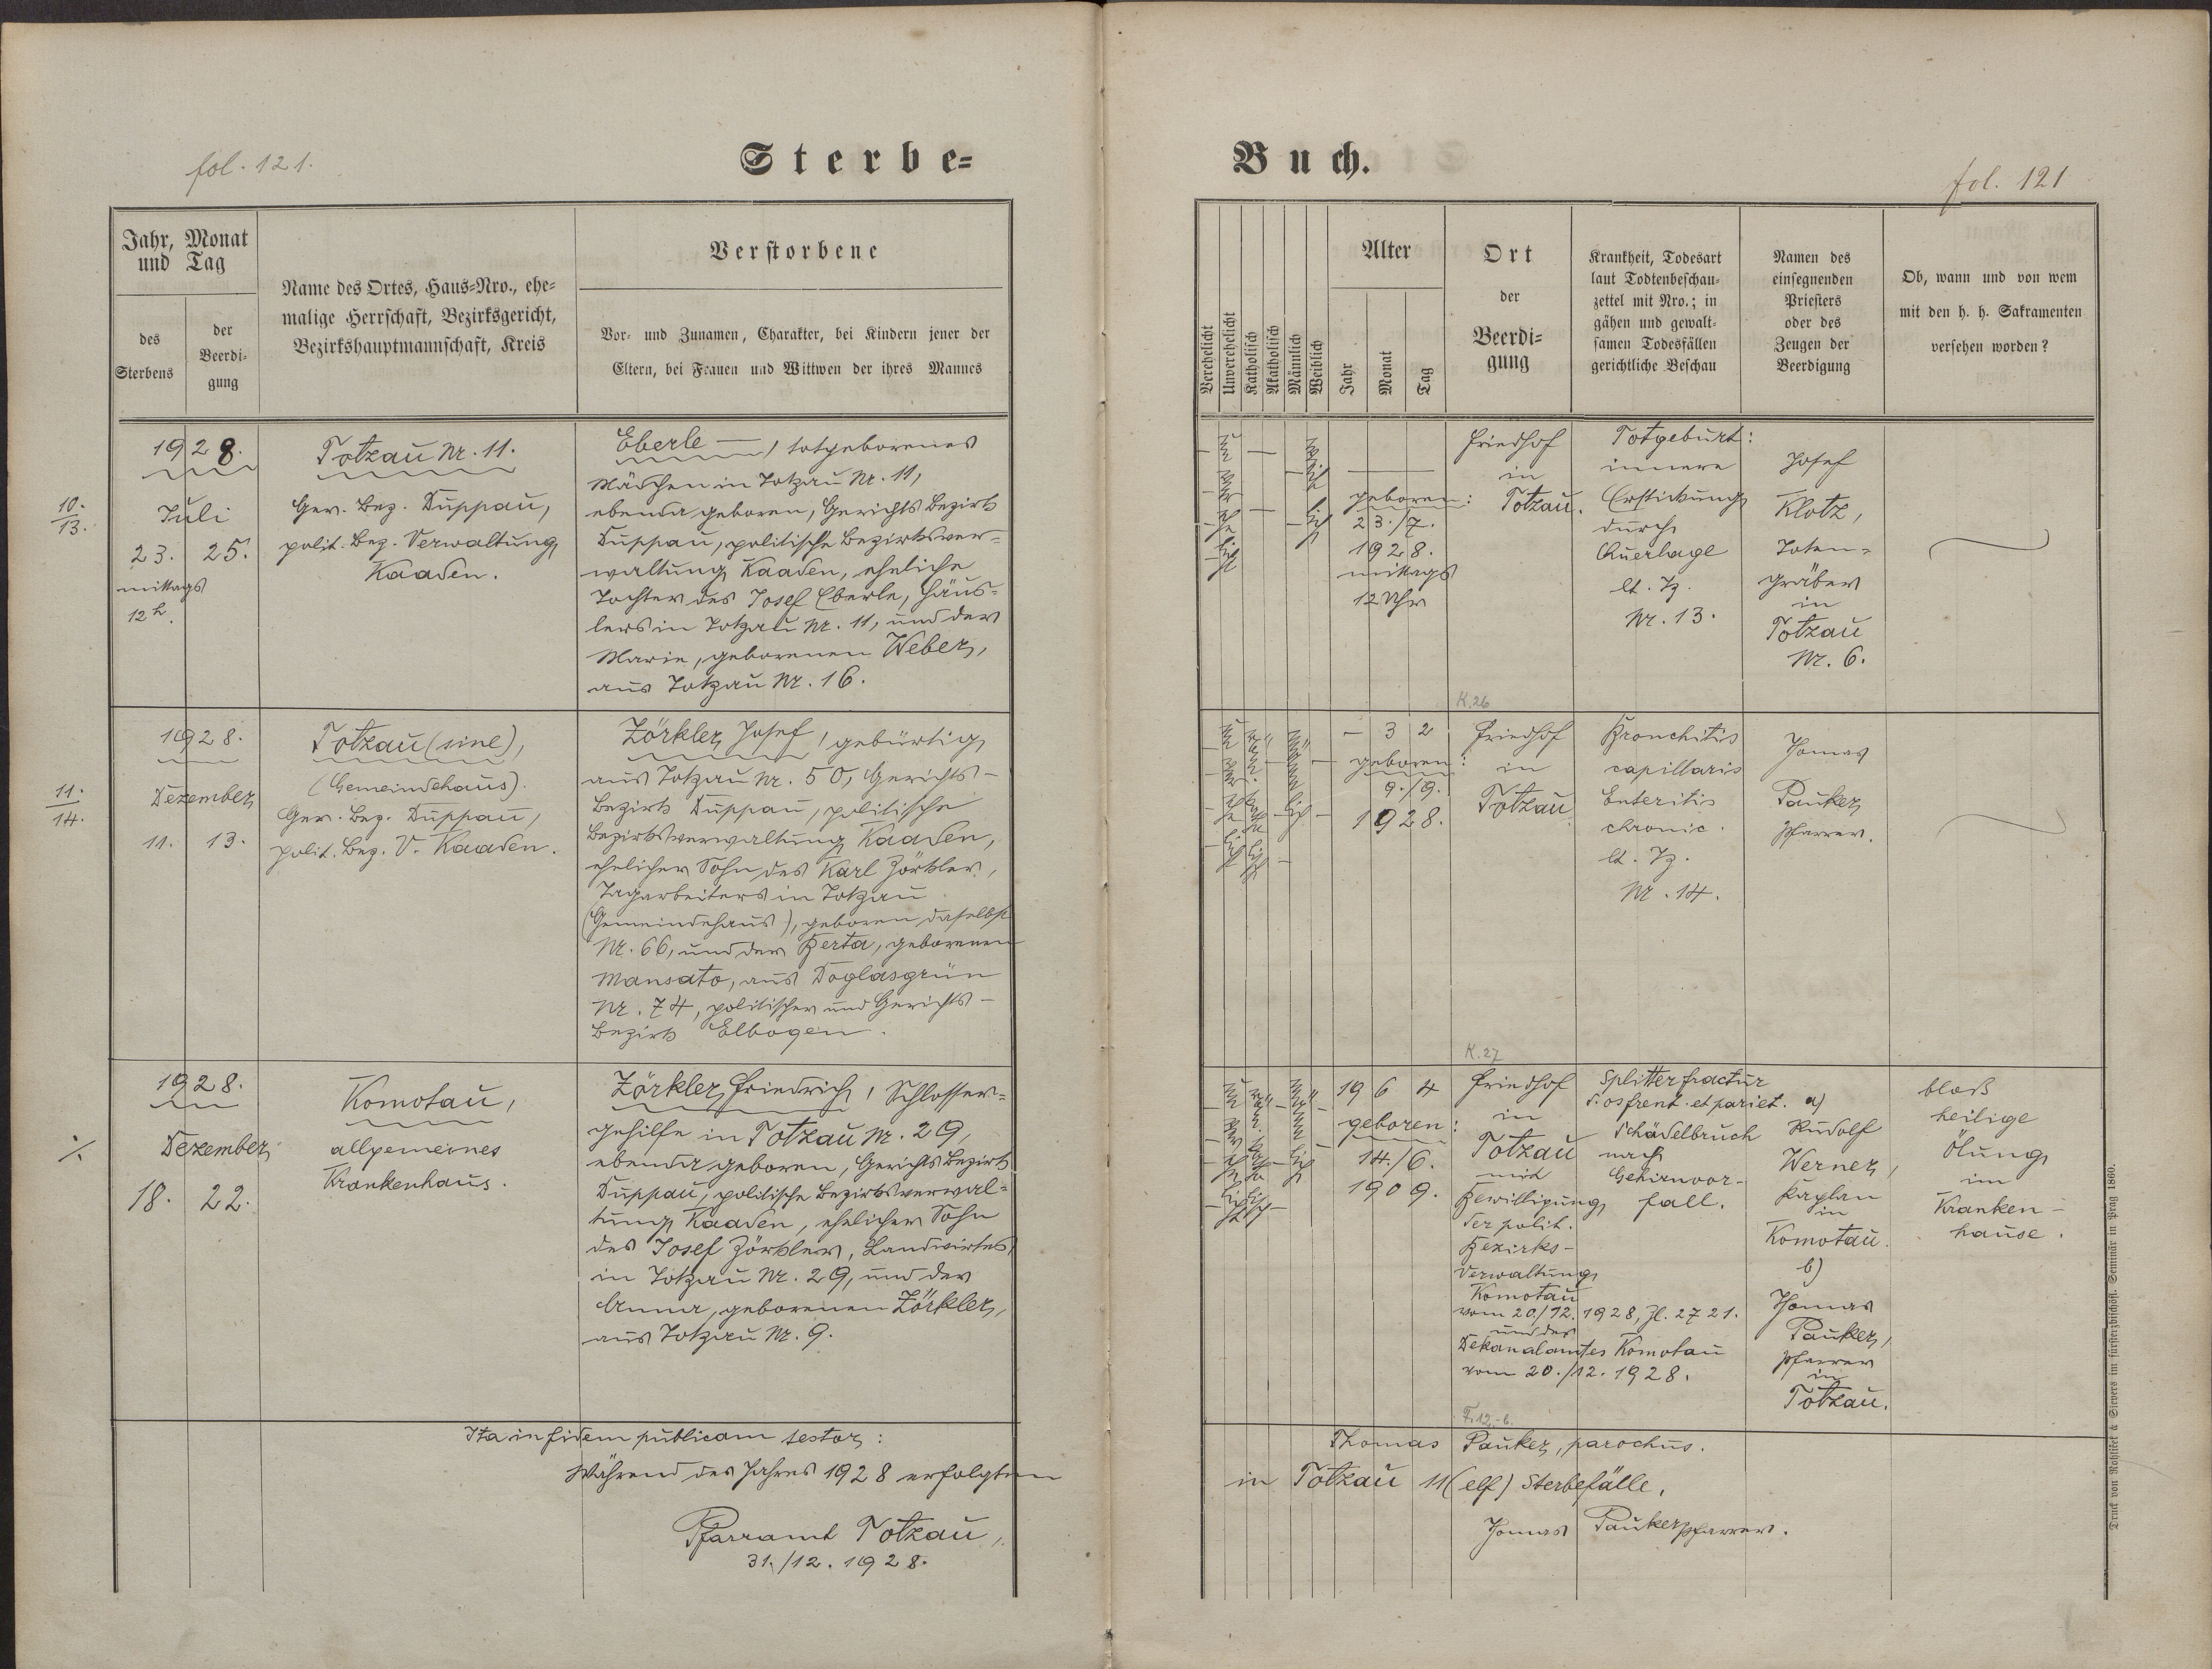 fol. 121.
Sterbe=
Jahr, Monat
und Tag
des
Sterbens
der
Beerdi-
gung
Name des Ortes, Haus=Nro., ehe=
malige Herrschaft, Bezirksgericht,
Bezirkshauptmannschaft, Kreis
Verstorbene
Vor- und Zunamen, Charakter, bei Kindern jener der
Eltern, bei Frauen und Wittwen der ihres Mannes
10.
13.
1928.
Juli
23. 25.
mittags
12 h.
Totzau Nr. 11.
Ger. Bez. Duppau,
polit. Bez. Verwaltung
Kaaden.
Eberle —, totgeborenes
Mädchen in Totzau Nr. 11,
ebenda geboren, Gerichts Bezirk
Duppau, politische Bezirksver=
waltung Kaaden, eheliche
Tochter des Josef Eberle, Häus=
lers in Totzau Nr. 11, und der
Marie, geborenen Weber,
aus Totzau Nr. 16.
11.
14.
1928.
Dezember
11. 13.
Totzau (sine),
(Gemeindehaus).
Ger. Bez. Duppau,
polit. Bez. V. Kaaden.
Zörkler Josef, gebürtig
aus Totzau Nr. 50, Gerichts-
Bezirk Duppau, politische
Bezirksverwaltung Kaaden,
ehelicher Sohn des Karl Zörkler,
Tagarbeiters in Totzau
(Gemeindehaus), geboren daselbst
Nr. 66, und der Berta, geborenen
Mansato, aus Doglasgrün
Nr. 74, politischer und Gerichts-
Bezirk Elbogen.
·/.
1928.
Dezember
18. 22.
Komotau,
allgemeines
Krankenhaus.
Zörkler Friedrich, Schlosser=
gehilfe in Totzau Nr. 29,
ebenda geboren, Gerichts Bezirk
Duppau, politische Bezirksverwal=
tung Kaaden, ehelicher Sohn
des Josef Zörkler, Landwirtes
in Totzau Nr. 29, und der
Anna, geborenen Zörkler,
aus Totzau Nr. 9.
Ita in fidem publicam testor:
Während des Jahres 1928 erfolgten
Pfarramt Totzau,
31./12. 1928.
Buch.
fol. 121
Verehelicht
Unverehelicht
Katholisch
Akatholisch
Männlich
Weiblich
Alter
Jahr
Monat
Tag
Ort
der
Beerdi=
gung
Krankheit, Todesart
laut Todtenbeschau=
zettel mit Nro.; in
gähen und gewalt=
samen Todesfällen
gerichtliche Beschau
Namen des
einsegnenden
Priesters
oder des
Zeugen der
Beerdigung
Ob, wann und von wem
mit den h. h. Sakramenten
versehen worden?
geboren:
23./7.
1928.
mittags
12 Uhr
Friedhof
in
Totzau.
Totgeburt:
innere
Erstickung
durch
Querlage
lt. Tz.
Nr. 13.
Josef
Klotz,
Toten=
gräber
in
Totzau
Nr. 6.
K. 26
- 3 2
geboren:
9./9.
1928.
Friedhof
in
Totzau
Bronchitis
capillaris
Enteritis
chronic.
lt. Tz.
Nr. 14.
Thomas
Pauker,
Pfarrer.
K. 27
19 6 4
geboren:
14./6.
1909.
Friedhof
in
Totzau
mit
Bewilligung
der polit.
Bezirks-
Verwaltung
Komotau
vom 20./12. 1928, Zl. 2721.
und des
Dekanalamtes Komotau
vom 20./12. 1928.
Splitterfractur
d. os frent. et pariet.
Schädelbruch
nach
Gehirnvor-
fall.
a)
Rudolf
Werner,
Kaplan
in
Komotau.
b)
Thomas
Pauker,
Pfarrer
in
Totzau.
bloß
heilige
Ölung
im
Kranken-
hause.
F. 12.-6.
Thomas Pauker, parochus.
in Totzau 11 (elf) Sterbefälle.
Thomas Pauker Pfarrer.
Druck von Rohliček & Sievers im fürsterzbischöfl. Seminär in Prag 1860.